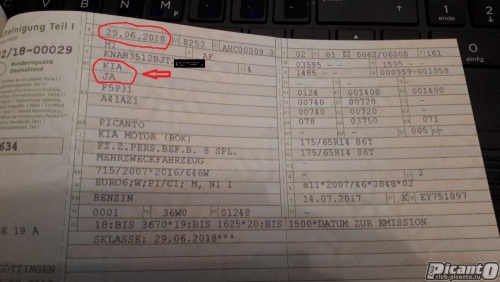 cheinigung Teil I
29.06.2018 8253 ARC00009 3
02 01 0062/06000 161
2/18-00029
M1 AF
KNAB3512BJT
03595 - 1595 - -
Bundesrepublik
Deutschland
KIA 4
1485 - - 000959-001058
JA
F5P31
0124 001400 001400
A41AZ1
00740 00720 -
00740 00720 -
078 03750 071
- - 005 -
PICANTO
175/65R14 86T
634
KIA MOTOR (ROK)
175/65R14 86T
FZ.Z.PERS.BEF.B. 8 SPL.
MEHRZWECKFAHRZEUG
3
715/2007*2016/646W
e11*2007/46*3848*02
EURO6;W;PI/CT; M, N1 I
BENZIN
14.07.2017 K EY751897
0001 36W0 01248
18:BIS 3670*19:BIS 1625*20:BIS 1500*DATUM ZUR EMISSION
E 19 A
SKLASSE: 29.06.2018***
GÖTTINGEN
Picanto
club-picanto.ru